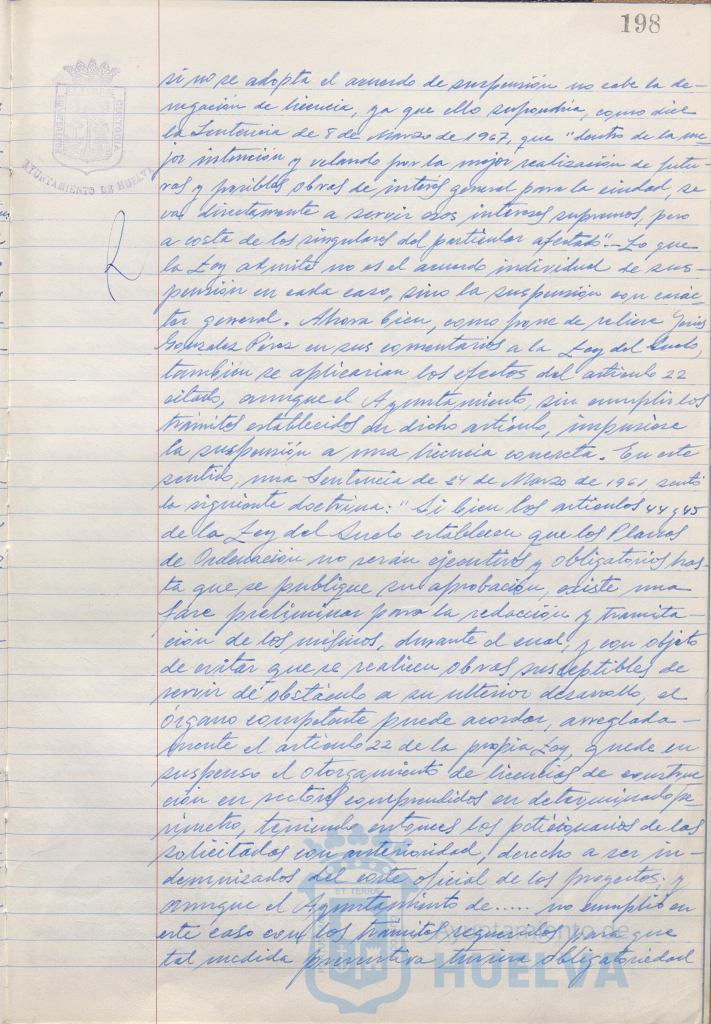 198
AYUNTAMIENTO DE HUELVA
si no se adopta el acuerdo de suspensión no cabe la de-
negación de licencia, ya que ello supondría, como dice
la Sentencia de 8 de Marzo de 1967, que "dentro de la me-
jor intención y velando por la mejor realización de futu-
ras y posibles obras de interés general para la ciudad, se
va directamente a servir esos intereses supremos, pero
a costa de los singulares del particular afectado".- Lo que
la Ley admite no es el acuerdo individual de sus-
pensión en cada caso, sino la suspensión con carác-
ter general. Ahora bien, como pone de relieve Jesús
González Pérez en sus comentarios a la Ley del Suelo,
también se aplicarian los efectos del artículo 22
citado, aunque el Ayuntamiento, sin cumplir los
trámites establecidos en dicho artículo, impusiese
la suspensión a una licencia concreta. En este
sentido, una Sentencia de 24 de Marzo de 1961, sentó
la siguiente doctrina: "Si bien los artículos 44 y 45
de la Ley del Suelo establecen que los Planes
de Ordenación no serán ejecutivos y obligatorios has-
ta que se publique su aprobación, existe una
fase preliminar para la redacción y tramita-
ción de los mismos, durante el cual, y con objeto
de evitar que se realicen obras susceptibles de
servir de obstáculo a su ulterior desarrollo, el
órgano competente puede acordar, arreglada-
mente el artículo 22 de la propia Ley, quede en
suspenso el otorgamiento de licencias de construc-
ción en sectores comprendidos en determinado pe-
rímetro, teniendo entonces los peticionarios de las
solicitadas con anterioridad, derecho a ser in-
demnizados del coste oficial de los proyectos; y
aunque el Ayuntamiento de..... no cumplió en
este caso con los trámites requeridos para que
tal medida preventiva tuviera obligatoriedad
ET TERRAE
Ayuntamiento de
HUELVA